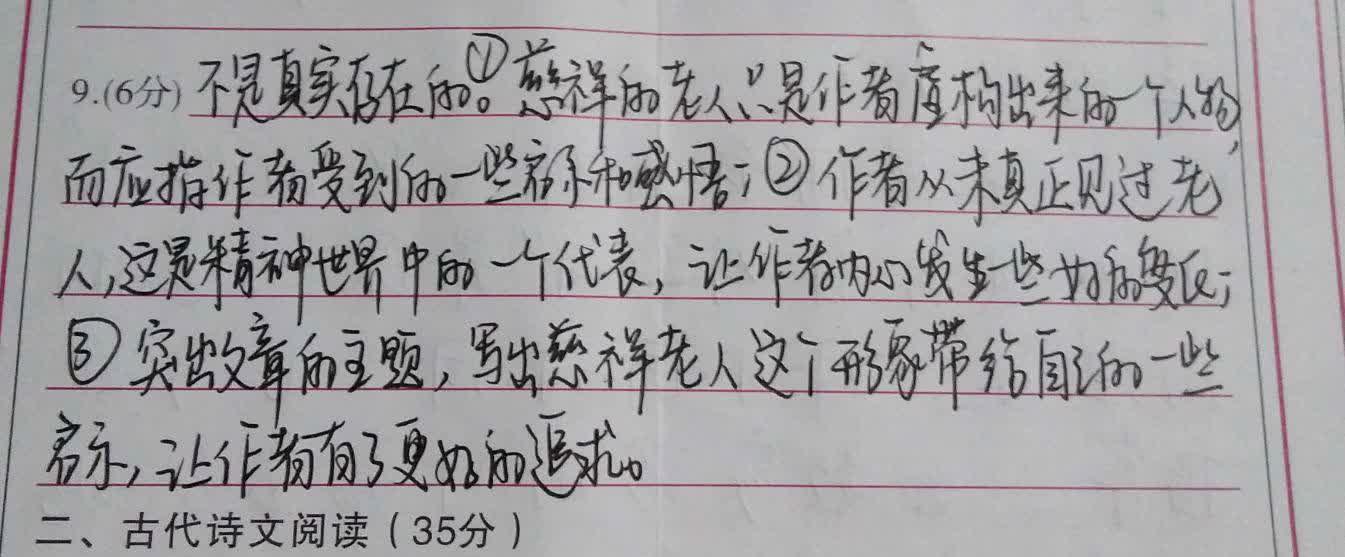 9.(6分) 不是真实存在的。①慈祥的老人只是作者虚构出来的一个人物,
而应指作者受到的一些启示和感悟;②作者从未真正见过老
人,这是精神世界中的一个代表,让作者内心发生一些好的变化;
③突出文章的主题,写出慈祥老人这个形象带给自己的一些
启示,让作者有了更好的追求。
二、古代诗文阅读(35分)